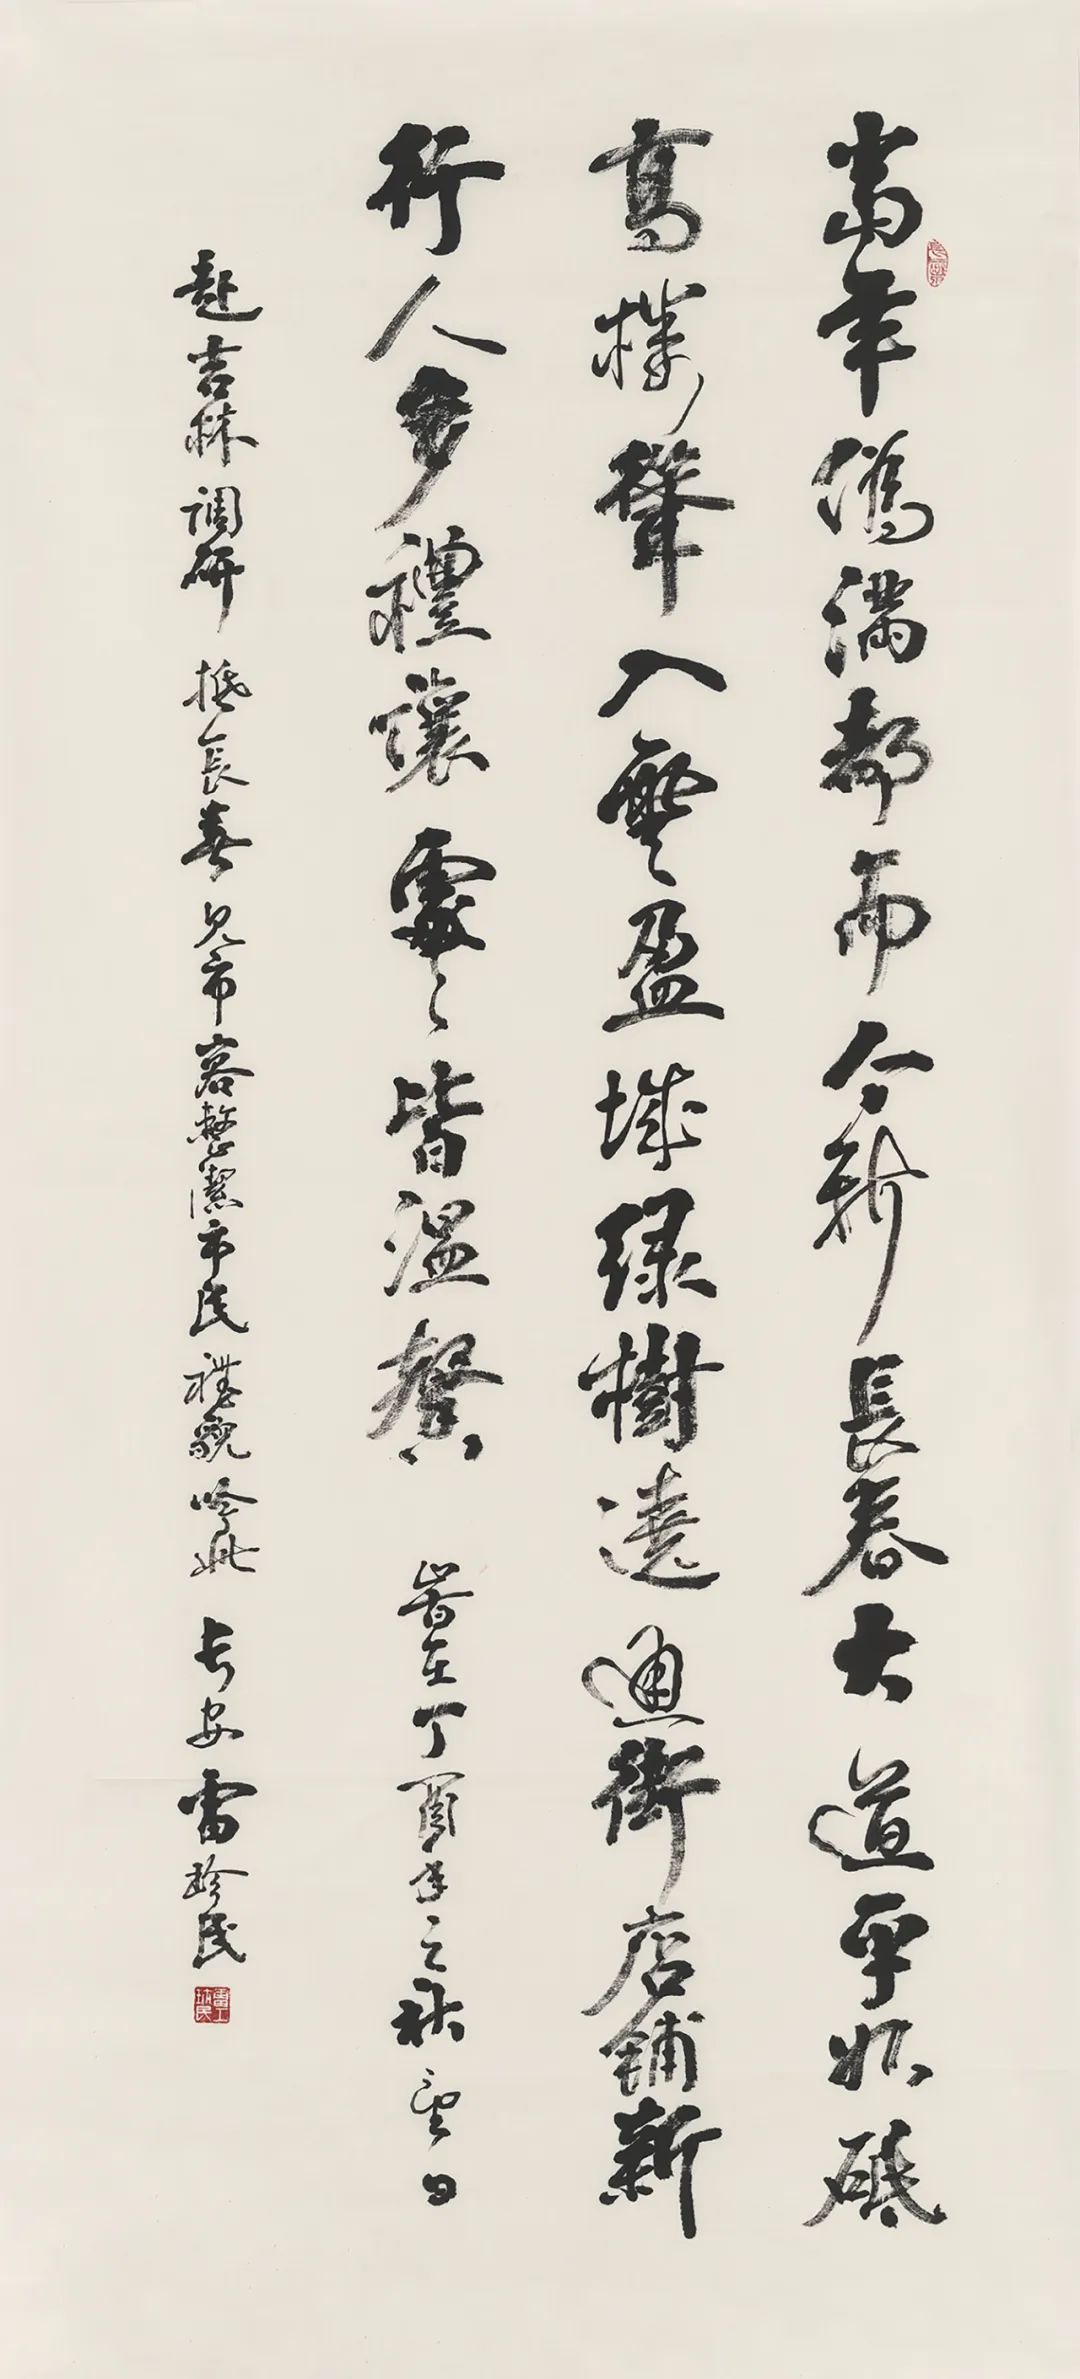 當年僞滿都而今新長春大道平如砥
高樓聳入雲盈城緑樹遶通街店鋪新
行人多禮讓處〻皆溫馨 旹在丁酉年之秋望日
赴吉林調研抵長春見市容整潔市民禮貌吟此 长安雷珍民